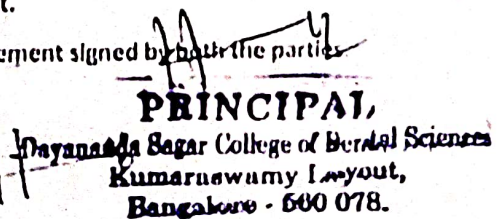 t.
ement signed by both the parties
PRINCIPAL
Dayananda Sagar College of Dental Sciences
Kumaraswamy Layout,
Bangalore - 560 078.